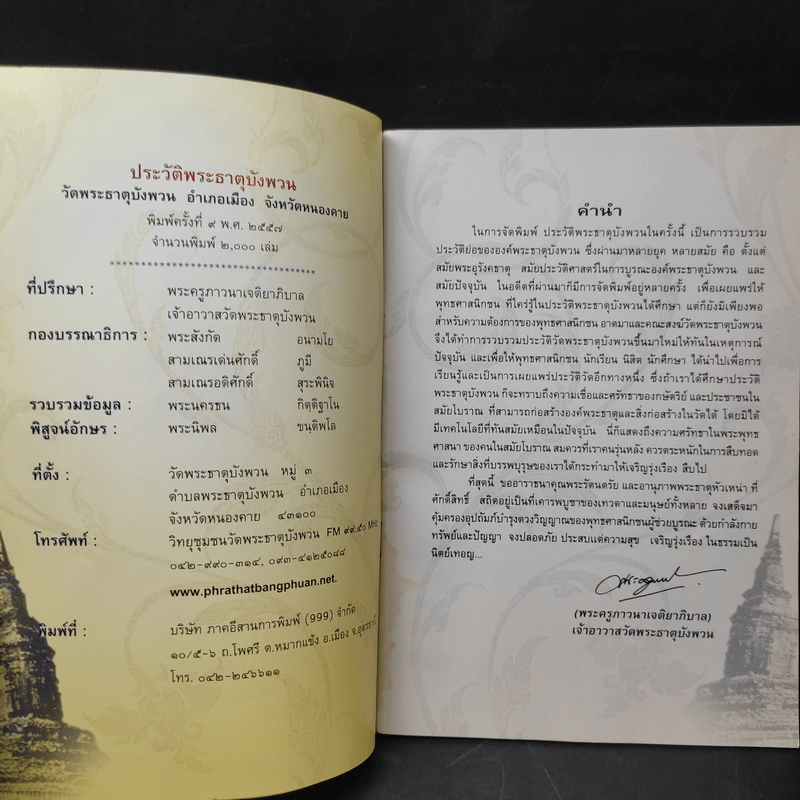 ประวัติพระธาตุบังพวน
วัดพระธาตุบังพวน อำเภอเมือง จังหวัดหนองคาย
พิมพ์ครั้งที่ ๙ พ.ศ. ๒๕๕๗
จำนวนพิมพ์ ๒,๐๐๐ เล่ม
ที่ปรึกษา : พระครูภาวนาเจติยาภิบาล
เจ้าอาวาสวัดพระธาตุบังพวน
กองบรรณาธิการ : พระสังกัด อนามโย
สามเณรเด่นศักดิ์ ภูมี
สามเณรอดิศักดิ์ สุระพินิจ
รวบรวมข้อมูล : พระนครธน กิตฺติฐาโน
พิสูจน์อักษร : พระนิพล ขนฺติพโล
ที่ตั้ง : วัดพระธาตุบังพวน หมู่ ๓
ตำบลพระธาตุบังพวน อำเภอเมือง
จังหวัดหนองคาย ๔๓๑๐๐
โทรศัพท์ : วิทยุชุมชนวัดพระธาตุบังพวน FM ๙๙.๕๐ MHz
๐๔๒-๙๙๐-๓๑๔, ๐๙๓-๔๑๒๕๐๘๘
www.phrathatbangphuan.net.
พิมพ์ที่ : บริษัท ภาคอีสานการพิมพ์ (999) จำกัด
๑๐/๕-๖ ถ.โพศรี ต.หมากแข้ง อ.เมือง จ.อุดรธานี
โทร. ๐๔๒-๒๔๖๖๑๑
คำนำ
ในการจัดพิมพ์ ประวัติพระธาตุบังพวนในครั้งนี้ เป็นการรวบรวม
ประวัติย่อขององค์พระธาตุบังพวน ซึ่งผ่านมาหลายยุค หลายสมัย คือ ตั้งแต่
สมัยพระอุรังคธาตุ สมัยประวัติศาสตร์ในการบูรณะองค์พระธาตุบังพวน และ
สมัยปัจจุบัน ในอดีตที่ผ่านมาก็มีการจัดพิมพ์อยู่หลายครั้ง เพื่อเผยแพร่ให้
พุทธศาสนิกชน ที่ใคร่รู้ในประวัติพระธาตุบังพวนได้ศึกษา แต่ก็ยังมิเพียงพอ
สำหรับความต้องการของพุทธศาสนิกชน อาตมาและคณะสงฆ์วัดพระธาตุบังพวน
จึงได้ทำการรวบรวมประวัติวัดพระธาตุบังพวนขึ้นมาใหม่ให้ทันในเหตุการณ์
ปัจจุบัน และเพื่อให้พุทธศาสนิกชน นักเรียน นิสิต นักศึกษา ได้นำไปเพื่อการ
เรียนรู้และเป็นการเผยแพร่ประวัติวัดอีกทางหนึ่ง ซึ่งถ้าเราได้ศึกษาประวัติ
พระธาตุบังพวน ก็จะทราบถึงความเชื่อและศรัทธาของกษัตริย์ และประชาชนใน
สมัยโบราณ ที่สามารถก่อสร้างองค์พระธาตุและสิ่งก่อสร้างในวัดได้ โดยมิได้
มีเทคโนโลยีที่ทันสมัยเหมือนในปัจจุบัน นี่ก็แสดงถึงความศรัทธาในพระพุทธ
ศาสนา ของคนในสมัยโบราณ สมควรที่เราคนรุ่นหลัง ควรตระหนักในการสืบทอด
และรักษาสิ่งที่บรรพบุรุษของเราได้กระทำมาให้เจริญรุ่งเรือง สืบไป
ที่สุดนี้ ขออาราธนาคุณพระรัตนตรัย และอานุภาพพระธาตุหัวเหน่า ที่
ศักดิ์สิทธิ์ สถิตอยู่เป็นที่เคารพบูชาของเทวดาและมนุษย์ทั้งหลาย จงเสด็จมา
คุ้มครองอุปถัมภ์บำรุงดวงวิญญาณของพุทธศาสนิกชนผู้ช่วยบูรณะ ด้วยกำลังกาย
ทรัพย์และปัญญา จงปลอดภัย ประสบแต่ความสุข เจริญรุ่งเรือง ในธรรมเป็น
นิตย์เทอญ...
(พระครูภาวนาเจติยาภิบาล)
เจ้าอาวาสวัดพระธาตุบังพวน